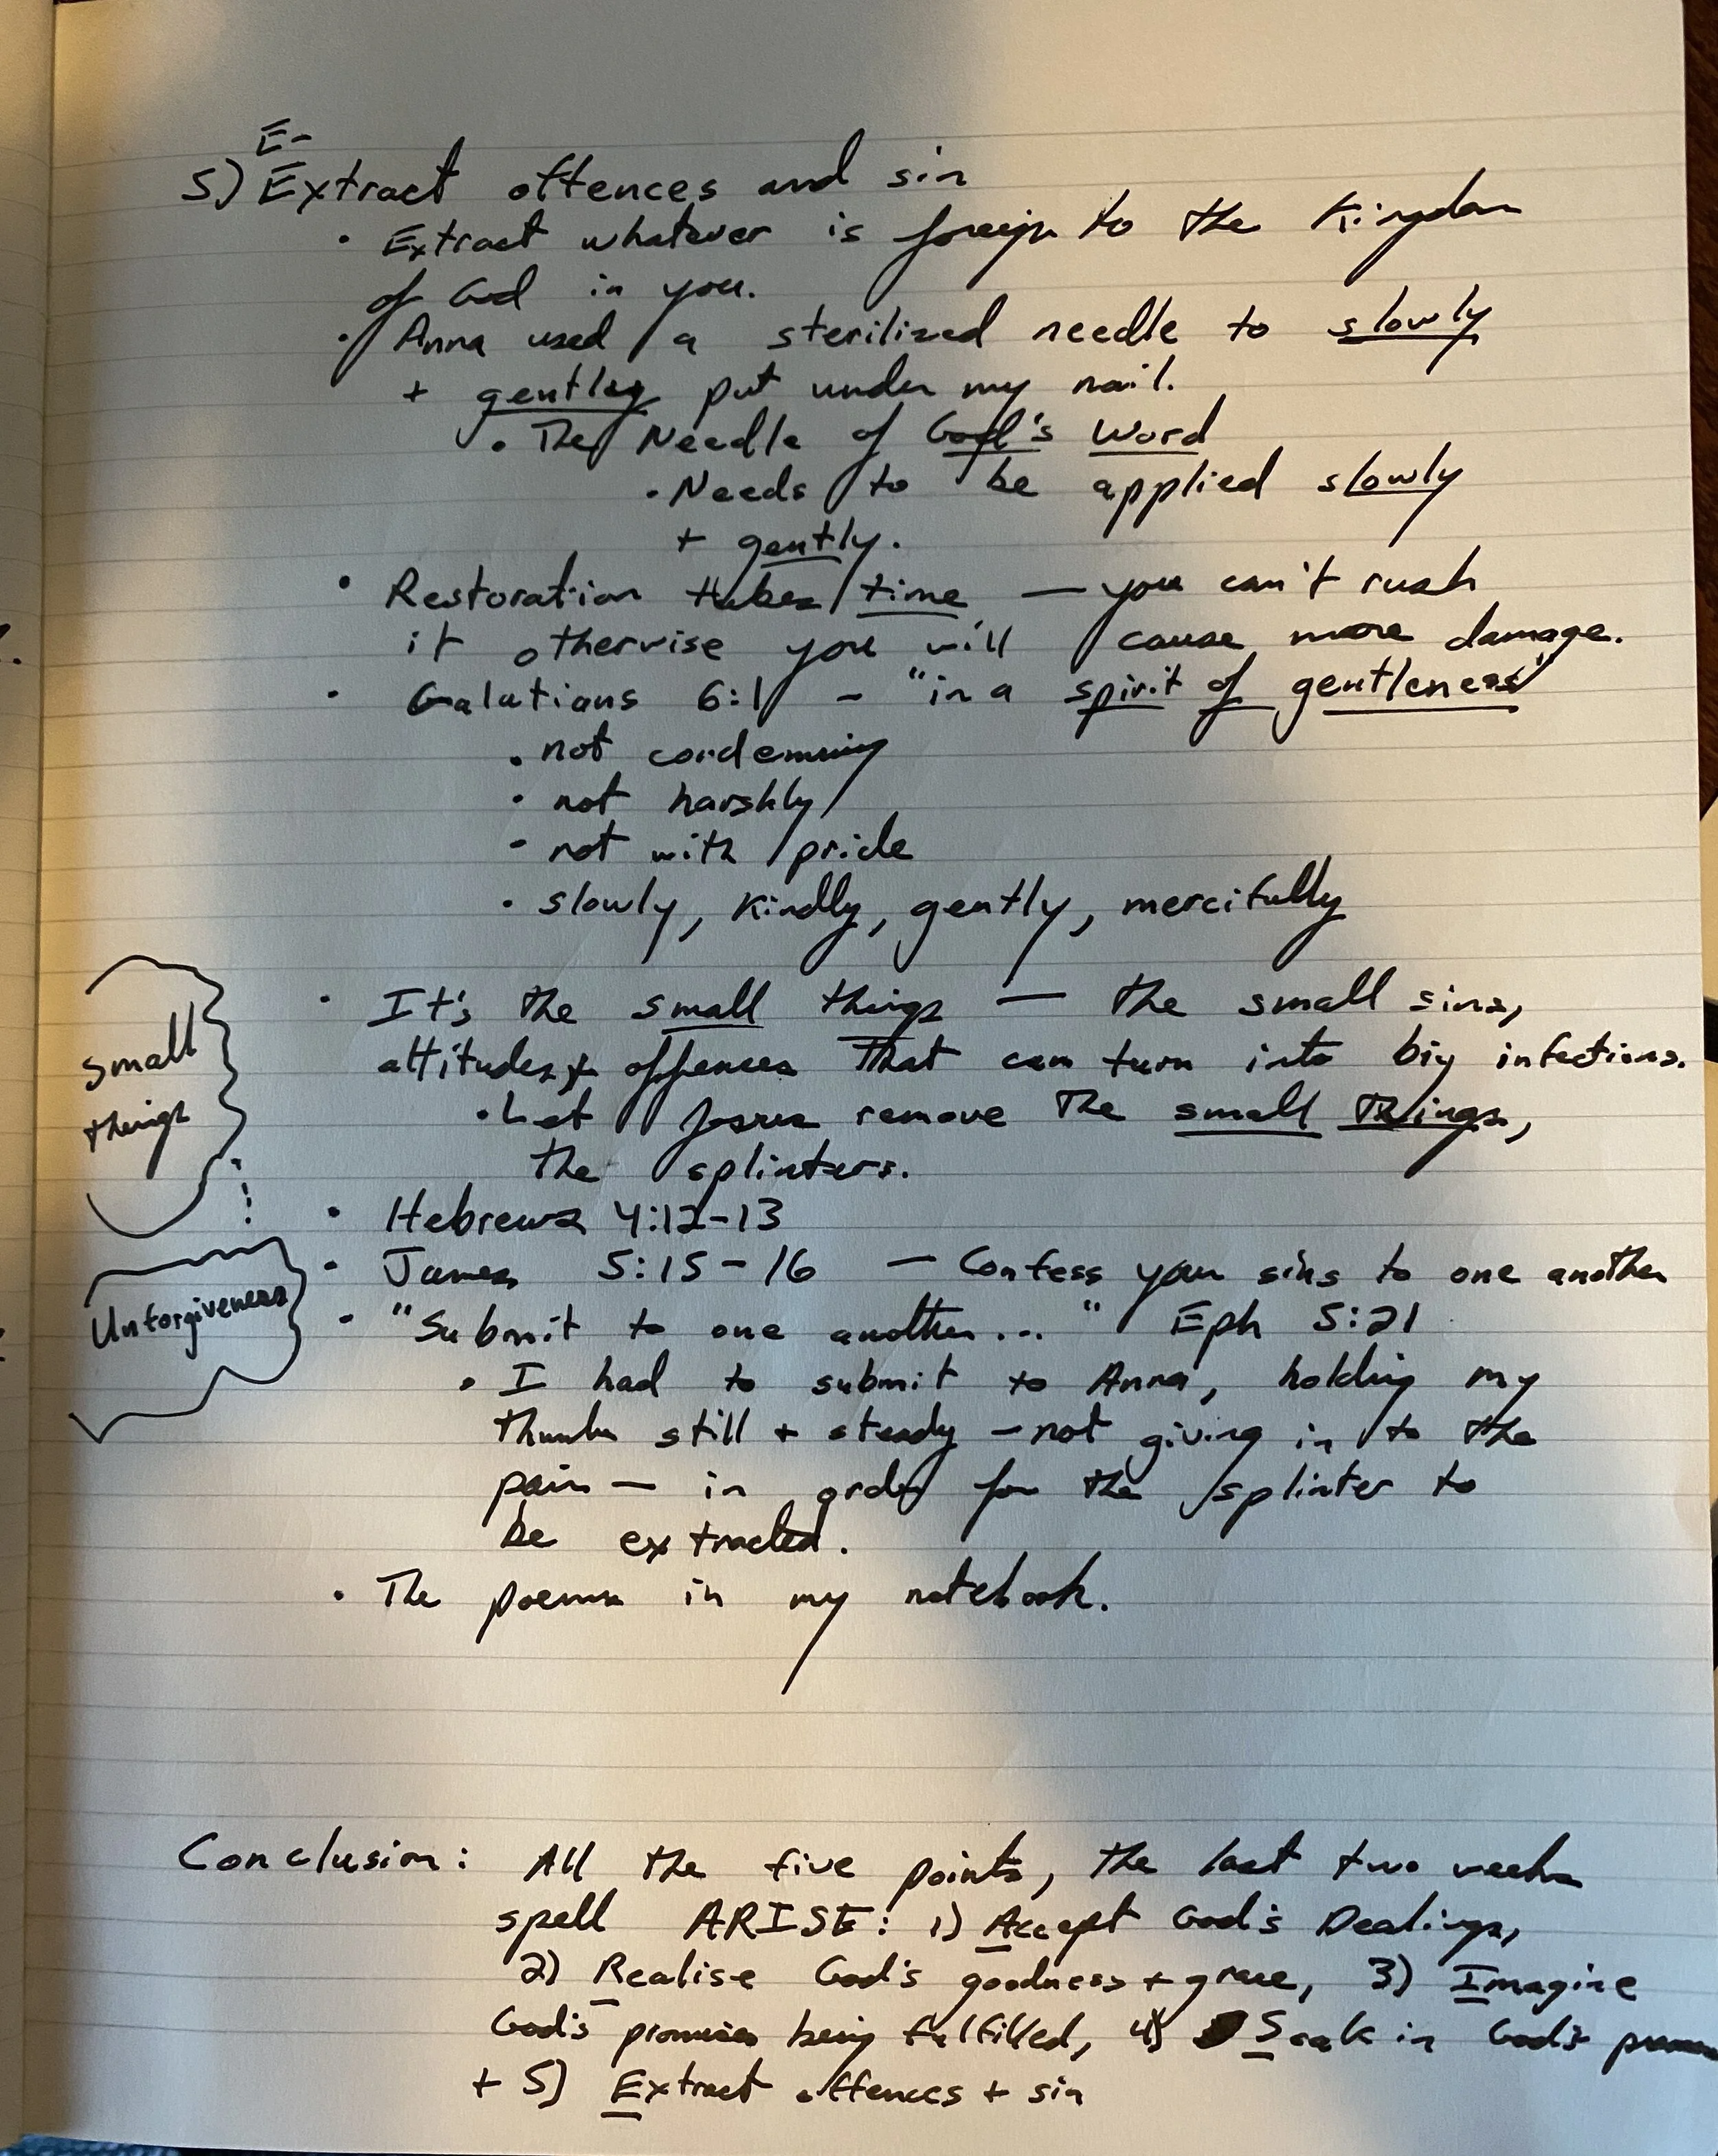 E-
5) Extract offences and sin
• Extract whatever is foreign to the Kingdom
of God in you.
• Anna used a sterilized needle to slowly
+ gently put under my nail.
• The Needle of God's Word
• Needs to be applied slowly
+ gently.
• Restoration takes time — you can't rush
it otherwise you will cause more damage.
• Galatians 6:1 - "in a spirit of gentleness"
• not condemning
• not harshly
• not with pride
• slowly, kindly, gently, mercifully
• It's the small things — the small sins,
attitudes + offences that can turn into big infections.
• Let Jesus remove the small things,
the splinters.
small
things
• Hebrews 4:12-13
• James 5:15-16 — Confess your sins to one another
Unforgiveness
• "Submit to one another..." Eph 5:21
• I had to submit to Anna, holding my
thumb still + steady - not giving in to the
pain — in order for the splinter to
be extracted.
• The poems in my notebook.
Conclusion: All the five points, the last two weeks
spell ARISE: 1) Accept God's Dealings,
2) Realise God's goodness + grace, 3) Imagine
God's promises being fulfilled, 4) Soak in God's
+ 5) Extract offences + sin